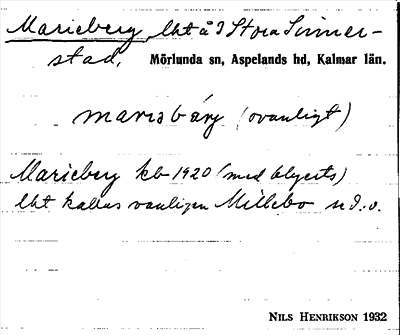 Marieberg, lht å Stora Sinner-
stad, Mörlunda sn, Aspelands hd, Kalmar län.
marisbærj (ovanligt)
Marieberg kb 1920 (med blyerts)
lht kallas vanligen Millebo se d. o.
NILS HENRIKSON 1932